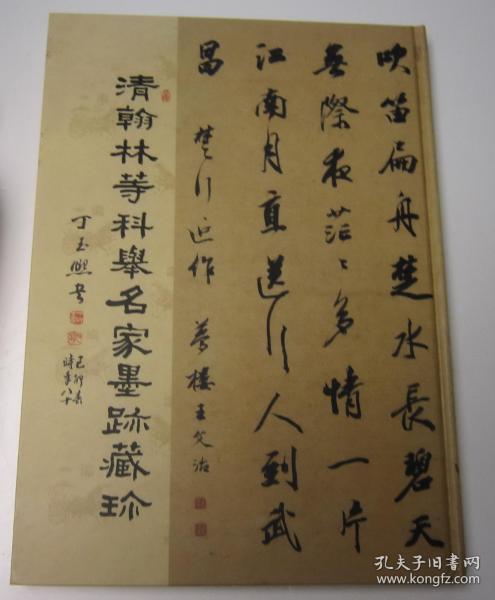 吹笛扁舟楚水長碧天
無際夜茫〻多情一片
江南月直送行人到武
昌
楚行近作 夢樓王文治
清翰林等科舉名家墨跡藏珍
丁玉熙书
己卯春
時年八十
孔夫子旧书网
www.kongfz.com